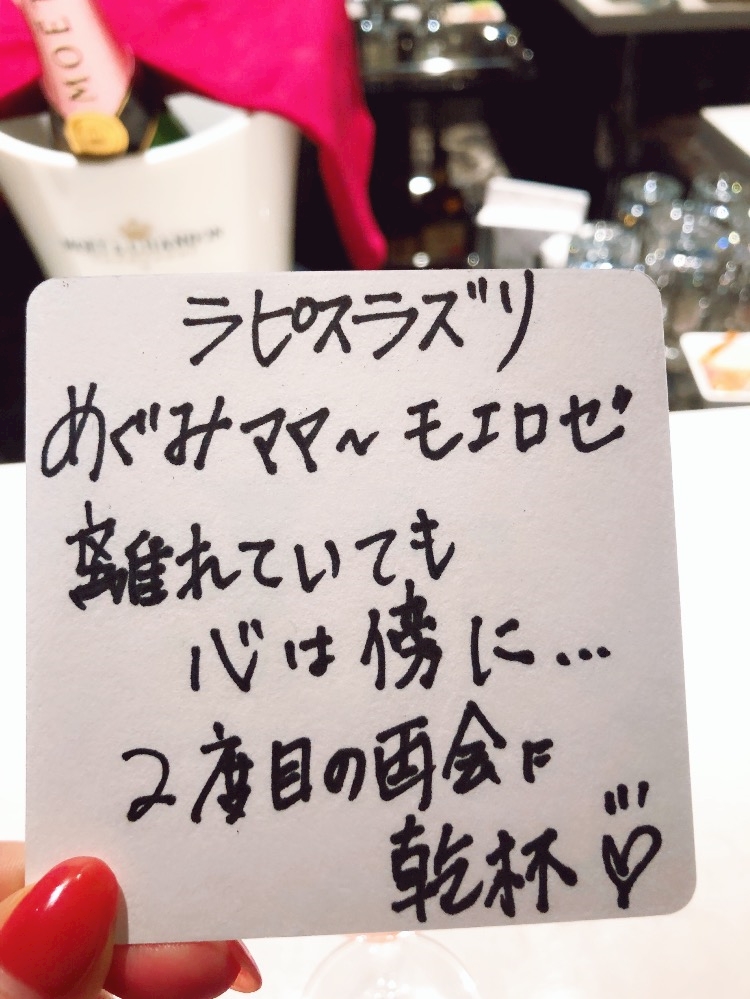 MOËT
MOËT & CHANDON
ラピスラズリ
めぐみママ〜モエロゼ
離れていても
心は傍に…
2度目の再会に
乾杯